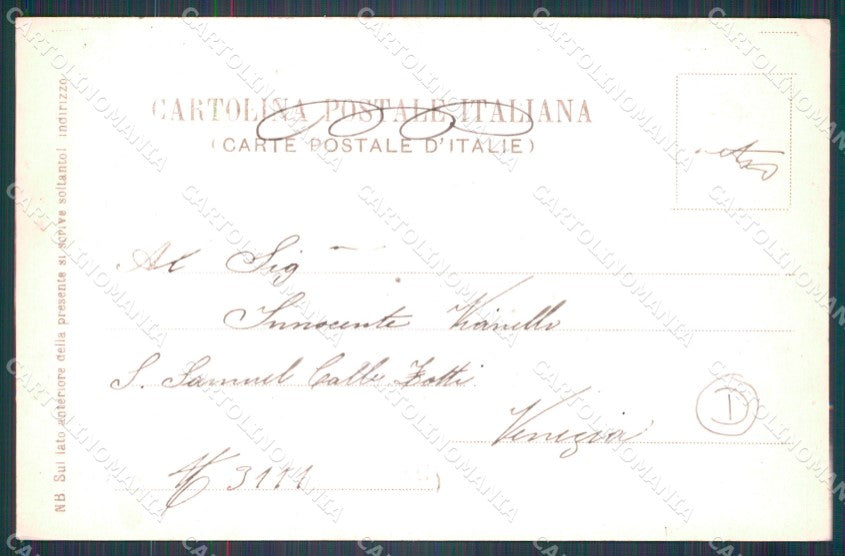 CARTOLINA POSTALE ITALIANA
(CARTE POSTALE D'ITALIE)
Al Sig
Innocente Vianello
S. Samuel Calle Zotti
Venezia
N 3171
I
NB Sul lato anteriore della presente si scrive soltanto l indirizzo
CARTOLINOMANIA